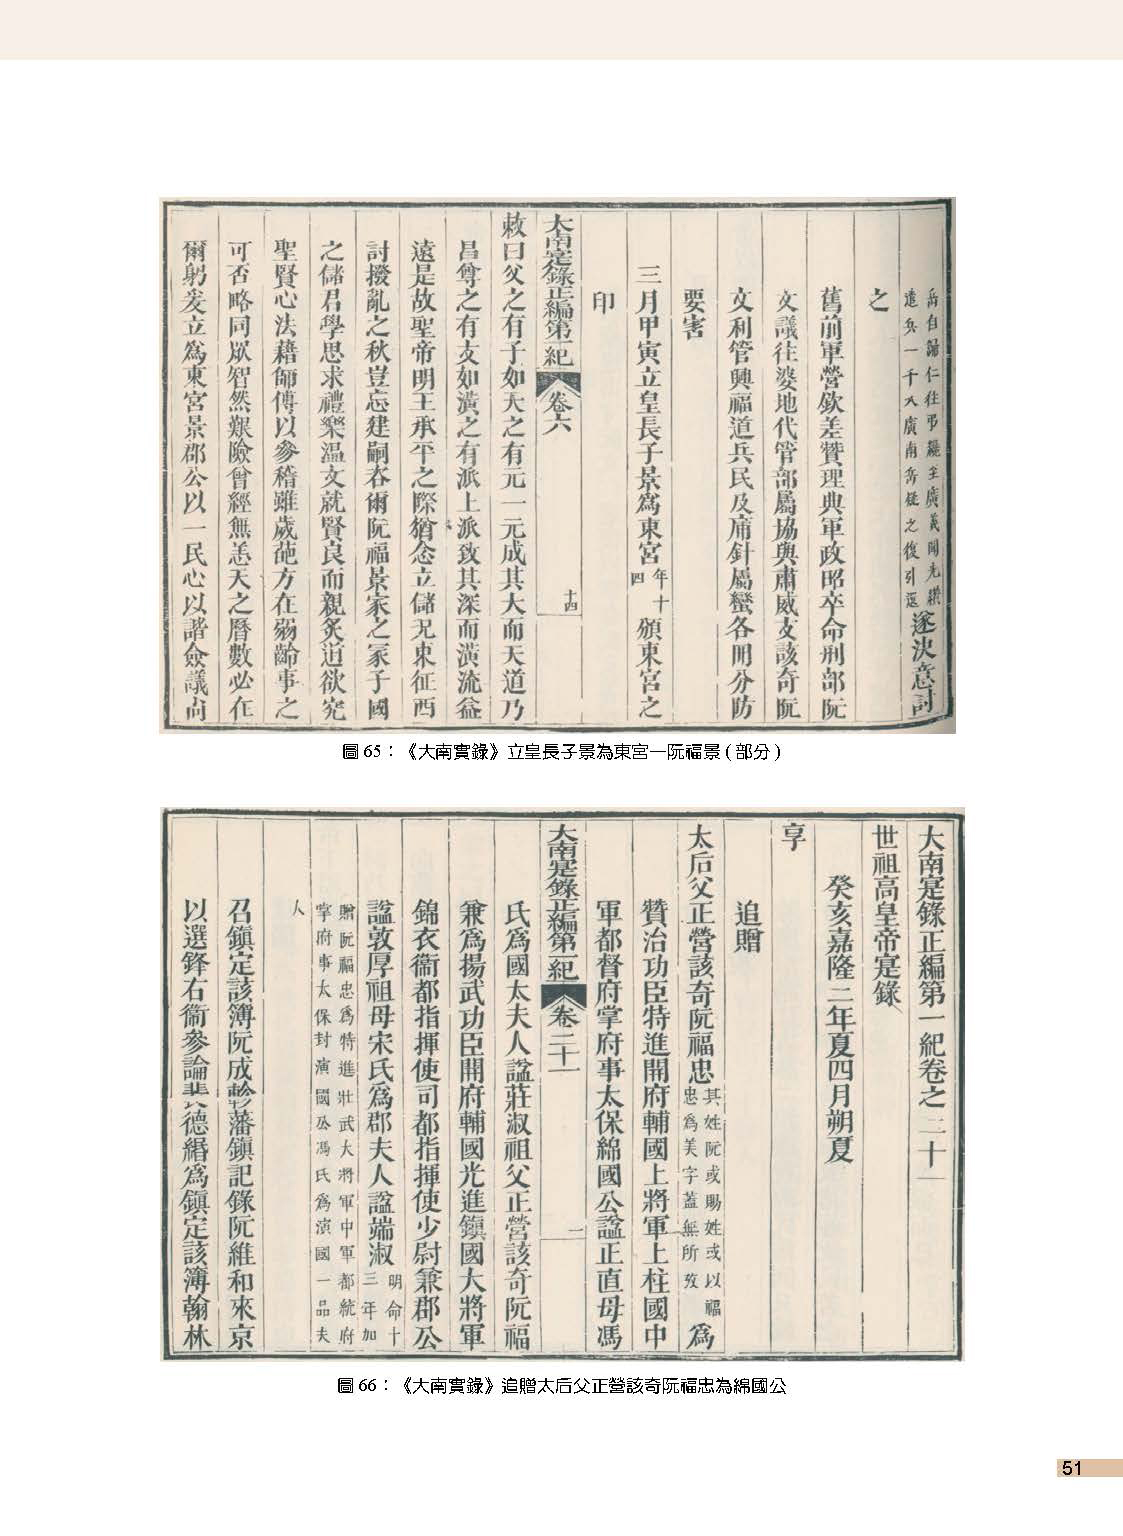 岳自歸仁往弔纔至廣義聞光纘
遣兵一千入廣南岳疑之復引還
遂決意討
之
舊前軍營欽差贊理典軍政昭卒命刑部阮
文議往婆地代管部屬協與肅威支該奇阮
文利管興福道兵民及庯針屬蠻各冊分防
要害
三月甲寅立皇長子景為東宮
年十
四
頒東宮之
印
大南寔錄正編第一紀 卷六 十四
敕曰父之有子如天之有元一元成其大而天道乃
昌尊之有支如潢之有派上派致其深而潢流益
遠是故聖帝明王承平之際猶念立儲況東征西
討撥亂之秋豈忘建嗣咨爾阮福景家之冢子國
之儲君學思求禮樂溫文就賢良而親炙迫欲究
聖賢心法藉師傅以參稽雖歲葩方在弱齡事之
可否略同眾智然艱險曾經無恙天之曆數必在
爾躬爰立為東宮景郡公以一民心以諧僉議尚
圖 65：《大南實錄》立皇長子景為東宮—阮福景 ( 部分 )
大南寔錄正編第一紀卷之二十一
世祖高皇帝寔錄
癸亥嘉隆二年夏四月朔夏
享
追贈
太后父正營該奇阮福忠
其姓阮或賜姓或以福
忠為美字蓋無所攷
為
贊治功臣特進開府輔國上將軍上柱國中
軍都督府掌府事太保綿國公諡正直母馮
大南寔錄正編第一紀 卷二十一 一
氏為國太夫人諡莊淑祖父正營該奇阮福
兼為揚武功臣開府輔國光進鎮國大將軍
錦衣衛都指揮使司都指揮使少尉兼郡公
諡敦厚祖母宋氏為郡夫人諡端淑
明命十
三年加
贈阮福忠為特進壯武大將軍中軍都統府
掌府事太保封演國公馮氏為演國一品夫
人
召鎮定該簿阮成軫藩鎮記錄阮維和來京
以選鋒右衞參論裴德緡為鎮定該簿翰林
圖 66：《大南實錄》追贈太后父正營該奇阮福忠為綿國公
51